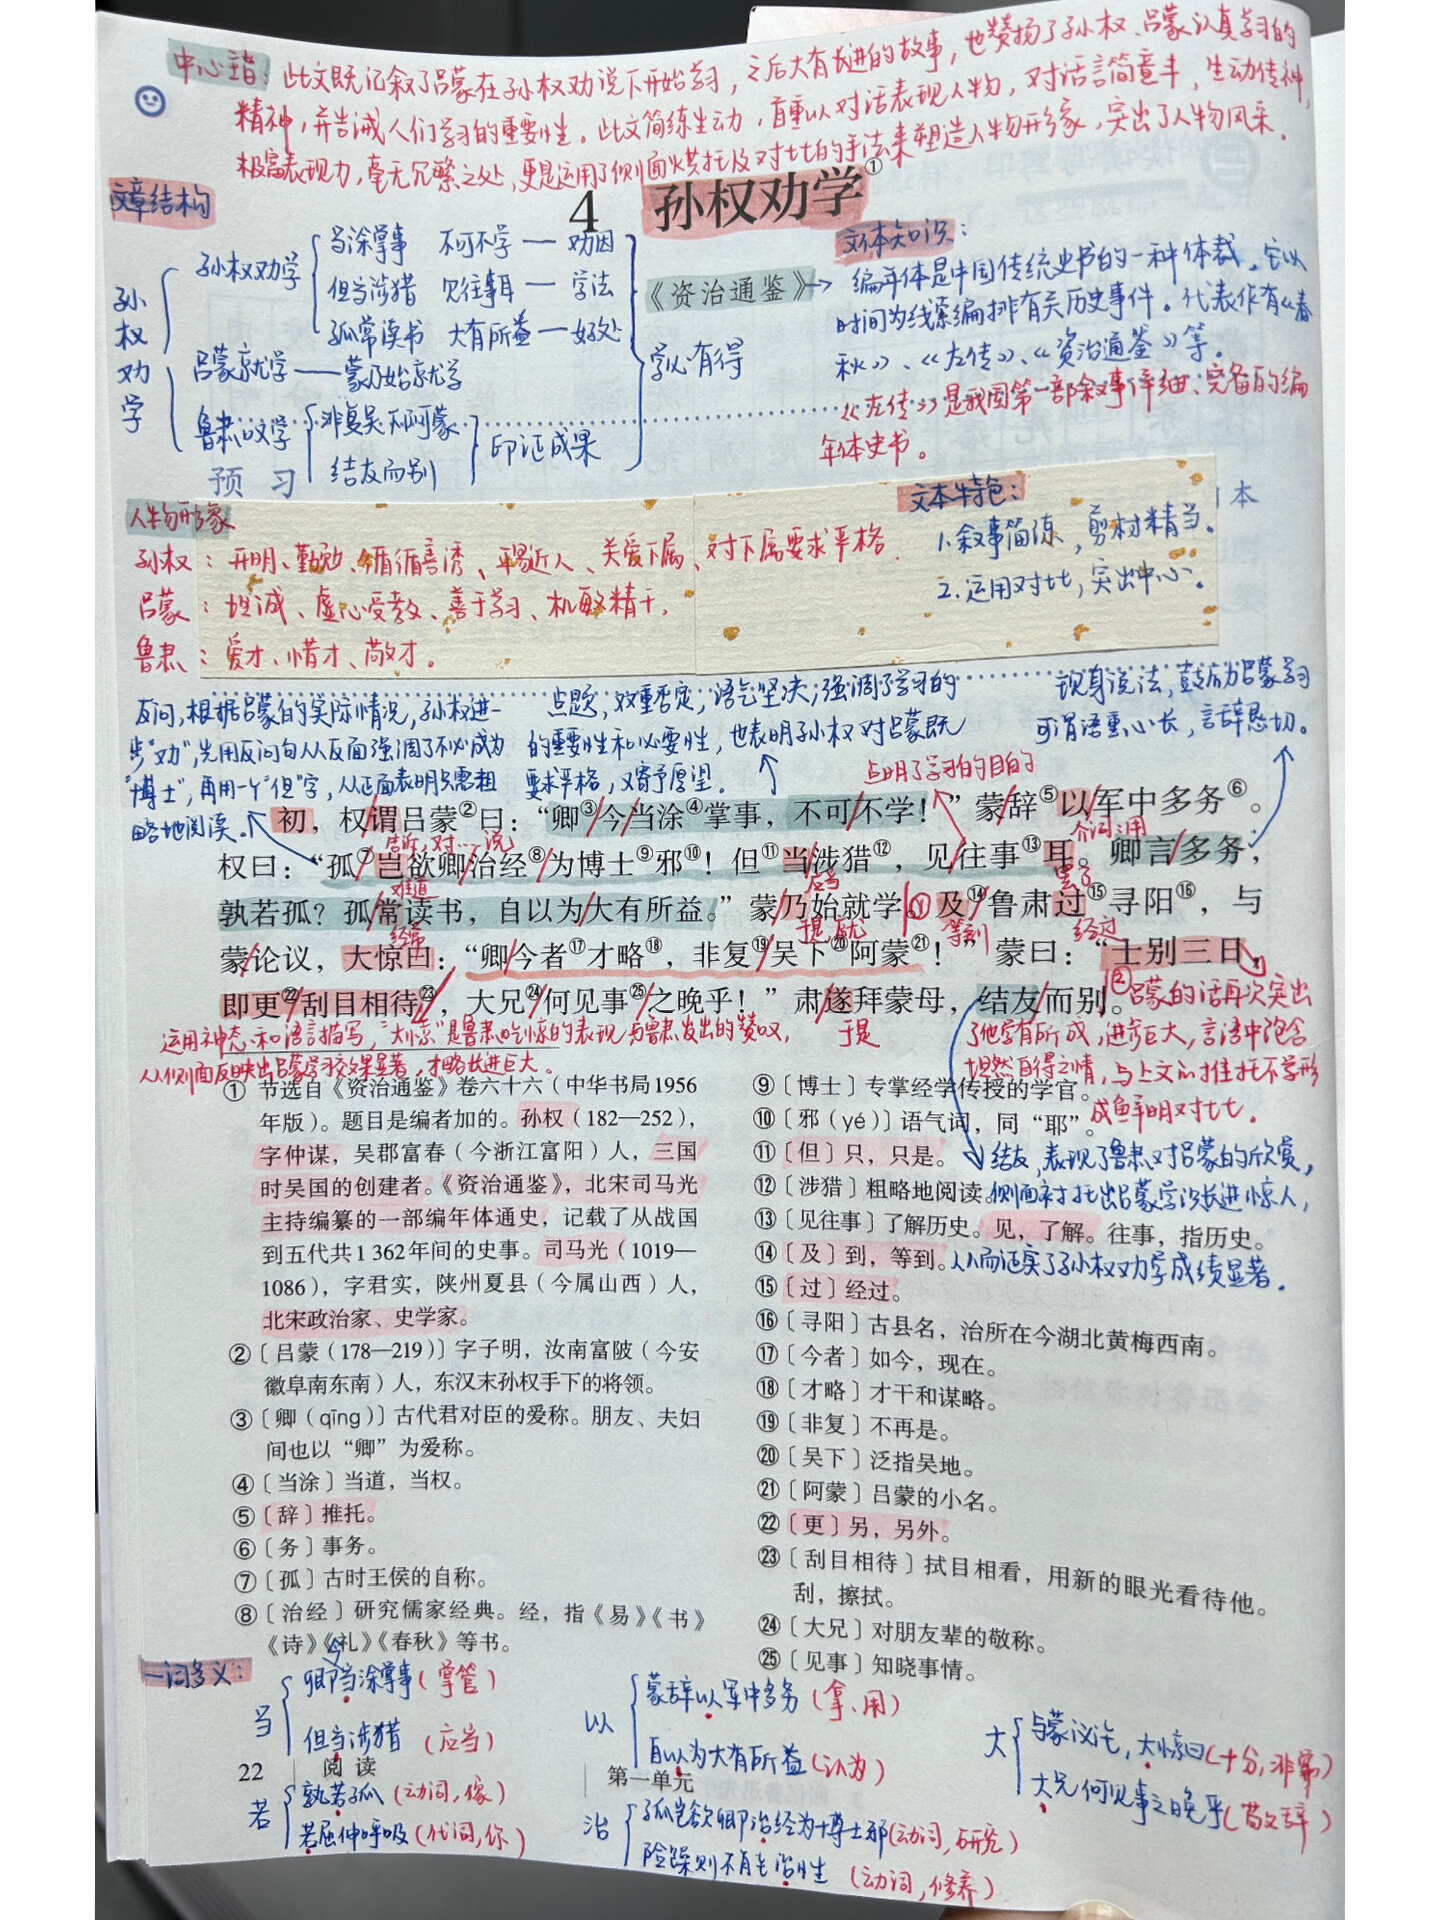 中心主旨：此文既记叙了吕蒙在孙权劝说下开始学习，之后大有长进的故事，也赞扬了孙权、吕蒙认真学习的
精神，并告诫人们学习的重要性。此文简练生动，首重以对话表现人物，对话言简意丰，生动传神，
极富表现力，毫无冗繁之处，更是运用了侧面烘托及对比的手法来塑造人物形象，突出了人物风采。
4 孙权劝学①
《资治通鉴》
文章结构
孙权劝学
孙权劝学
当涂掌事 不可不学——劝因
但当涉猎 见往事耳——学法
孤常读书 大有所益——好处
吕蒙就学——蒙乃始就学
鲁肃叹学
非复吴下阿蒙
结友而别
印证成果
学必有得
文体知识：
编年体是中国传统史书的一种体裁。它以
时间为线索编排有关历史事件。代表作有《春
秋》、《左传》、《资治通鉴》等。
《左传》是我国第一部叙事详细、完备的编
年体史书。
预 习
本
人物形象
孙权：开明、勤勉、循循善诱、平易近人、关爱下属、对下属要求严格
吕蒙：坦诚、虚心受教、善于学习、机敏精干，
鲁肃：爱才、惜才、敬才。
文本特色：
1.叙事简练，剪材精当。
2.运用对比，突出中心。
反问，根据吕蒙的实际情况，孙权进一
步“劝”，先用反问句从反面强调了不必成为
“博士”，再用一个“但”字，从正面表明只需粗
略地阅读。
点题，双重否定，语气坚决，强调了学习的
的重要性和必要性，也表明孙权对吕蒙既
要求严格，又寄予厚望。
现身说法，鼓励吕蒙学习
可谓语重心长，言辞恳切。
点明了学习的目的
初，权谓吕蒙②曰：“卿③今当涂④掌事，不可不学！”蒙辞⑤以军中多务⑥。
告诉，对……说
介词：用
权曰：“孤⑦岂欲卿治经⑧为博士⑨邪⑩！但⑪当涉猎⑫，见往事⑬耳。卿言多务，
难道
应当
罢了
孰若孤？孤常读书，自以为大有所益。”蒙乃始就学。及⑭鲁肃过⑮寻阳⑯，与
经常
于是，就
等到
经过
蒙论议，大惊曰：“卿今者⑰才略⑱，非复⑲吴下⑳阿蒙㉑！”蒙曰：“士别三日，
即更㉒刮目相待㉓，大兄㉔何见事㉕之晚乎！”肃遂拜蒙母，结友而别。
于是
运用神态和语言描写，“大惊”是鲁肃吃惊的表现与鲁肃发出的赞叹，
从侧面反映出吕蒙学习效果显著，才略长进巨大。
②吕蒙的话再次突出
了他学有所成，进步巨大，言语中饱含
坦然自得之情，与上文的推托不学形
成鲜明对比。
结友，表现了鲁肃对吕蒙的欣赏，
侧面衬托出吕蒙学识长进惊人，
从而证实了孙权劝学成绩显著。
① 节选自《资治通鉴》卷六十六（中华书局1956
年版）。题目是编者加的。孙权（182—252），
字仲谋，吴郡富春（今浙江富阳）人，三国
时吴国的创建者。《资治通鉴》，北宋司马光
主持编纂的一部编年体通史，记载了从战国
到五代共1 362年间的史事。司马光（1019—
1086），字君实，陕州夏县（今属山西）人，
北宋政治家、史学家。
②〔吕蒙（178—219）〕字子明，汝南富陂（今安
徽阜南东南）人，东汉末孙权手下的将领。
③〔卿（qīng）〕古代君对臣的爱称。朋友、夫妇
间也以“卿”为爱称。
④〔当涂〕当道，当权。
⑤〔辞〕推托。
⑥〔务〕事务。
⑦〔孤〕古时王侯的自称。
⑧〔治经〕研究儒家经典。经，指《易》《书》
《诗》《礼》《春秋》等书。
⑨〔博士〕专掌经学传授的学官。
⑩〔邪（yé）〕语气词，同“耶”。
⑪〔但〕只，只是。
⑫〔涉猎〕粗略地阅读。
⑬〔见往事〕了解历史。见，了解。往事，指历史。
⑭〔及〕到，等到。
⑮〔过〕经过。
⑯〔寻阳〕古县名，治所在今湖北黄梅西南。
⑰〔今者〕如今，现在。
⑱〔才略〕才干和谋略。
⑲〔非复〕不再是。
⑳〔吴下〕泛指吴地。
㉑〔阿蒙〕吕蒙的小名。
㉒〔更〕另，另外。
㉓〔刮目相待〕拭目相看，用新的眼光看待他。
刮，擦拭。
㉔〔大兄〕对朋友辈的敬称。
㉕〔见事〕知晓事情。
一词多义：
当
卿今当涂掌事（掌管）
但当涉猎（应当）
若
孰若孤（动词，像）
若屈伸呼吸（代词，你）
以
蒙辞以军中多务（拿、用）
自以为大有所益（认为）
治
孤岂欲卿治经为博士邪（动词，研究）
险躁则不能治性（动词，修养）
大
与蒙议论，大惊曰（十分，非常）
大兄何见事之晚乎（敬辞）
22 阅 读
第一单元